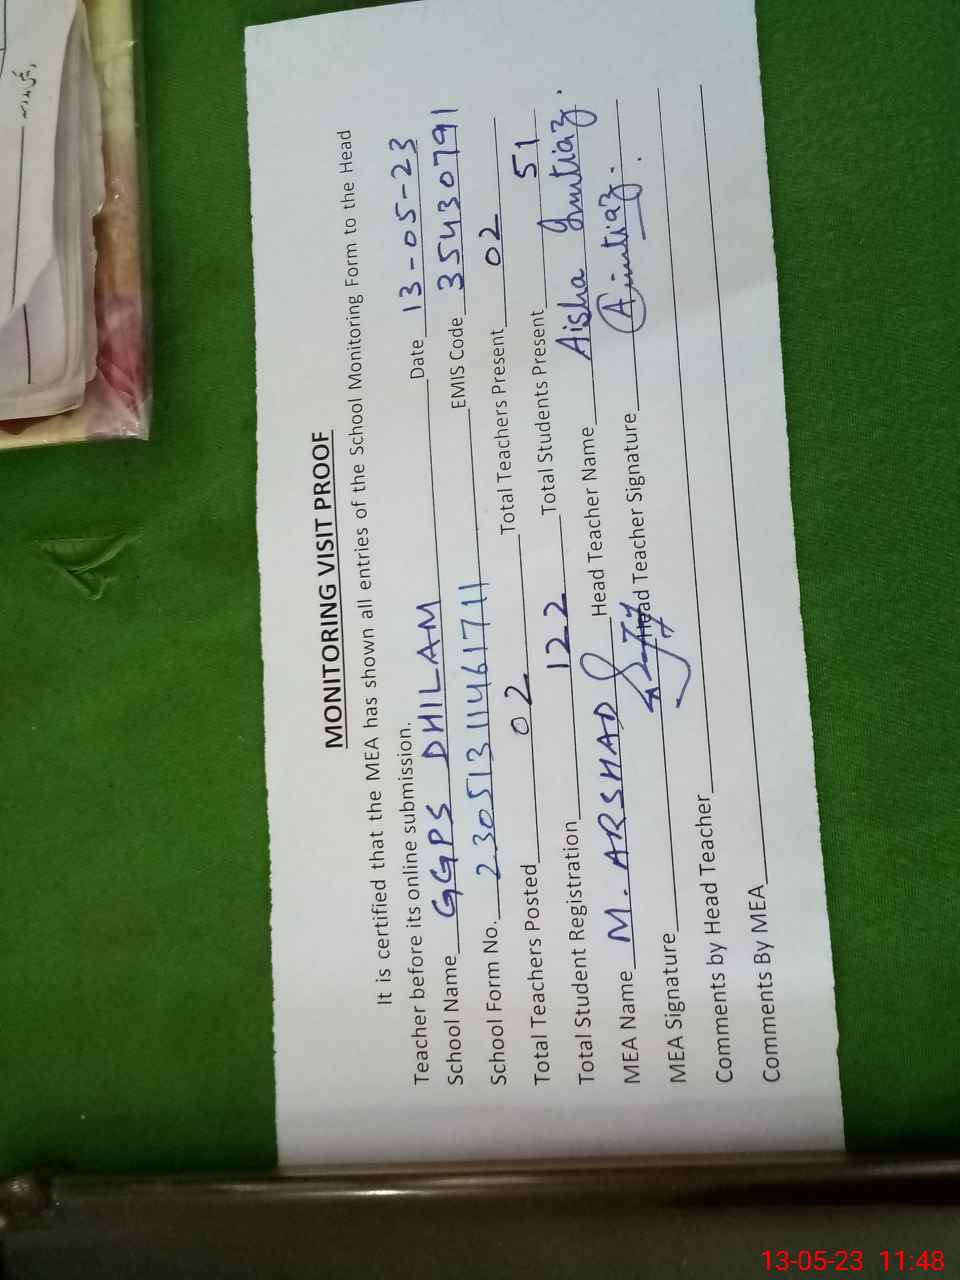 MONITORING VISIT PROOF
It is certified that the MEA has shown all entries of the School Monitoring Form to the Head
Teacher before its online submission. Date 13-05-23
School Name GGPS DHILAM EMIS Code 35430791
School Form No. 23051311461711 Total Teachers Present 02
Total Teachers Posted 02 Total Students Present 51
Total Student Registration 122 Head Teacher Name Aisha Imtiaz.
MEA Name M. ARSHAD Head Teacher Signature Aimtiaz.
MEA Signature
Comments by Head Teacher
Comments By MEA
13-05-23 11:48